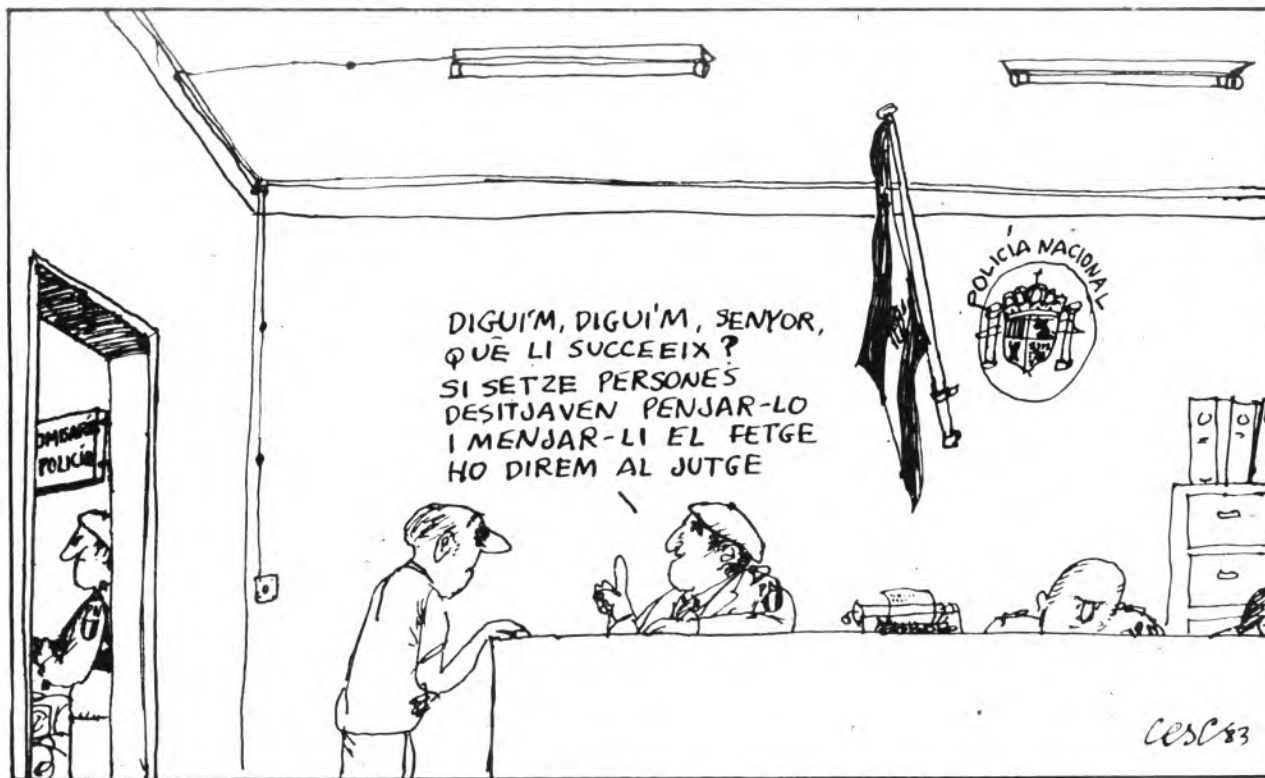 POLICÍA NACIONAL
DIGUI'M, DIGUI'M, SENYOR,
QUÈ LI SUCCEEIX?
SI SETZE PERSONES
DESITJAVEN PENJAR-LO
I MENJAR-LI EL FETGE
HO DIREM AL JUTGE
OMISARÍ
POLICÍA
PN
CESC 83